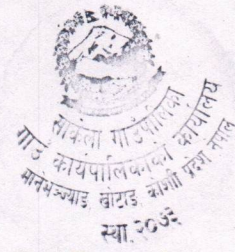 साकेला गाउँपालिका
गाउँ कार्यपालिकाको कार्यालय
मानेभञ्ज्याङ, खोटाङ, कोशी प्रदेश नेपाल
स्था. २०७३